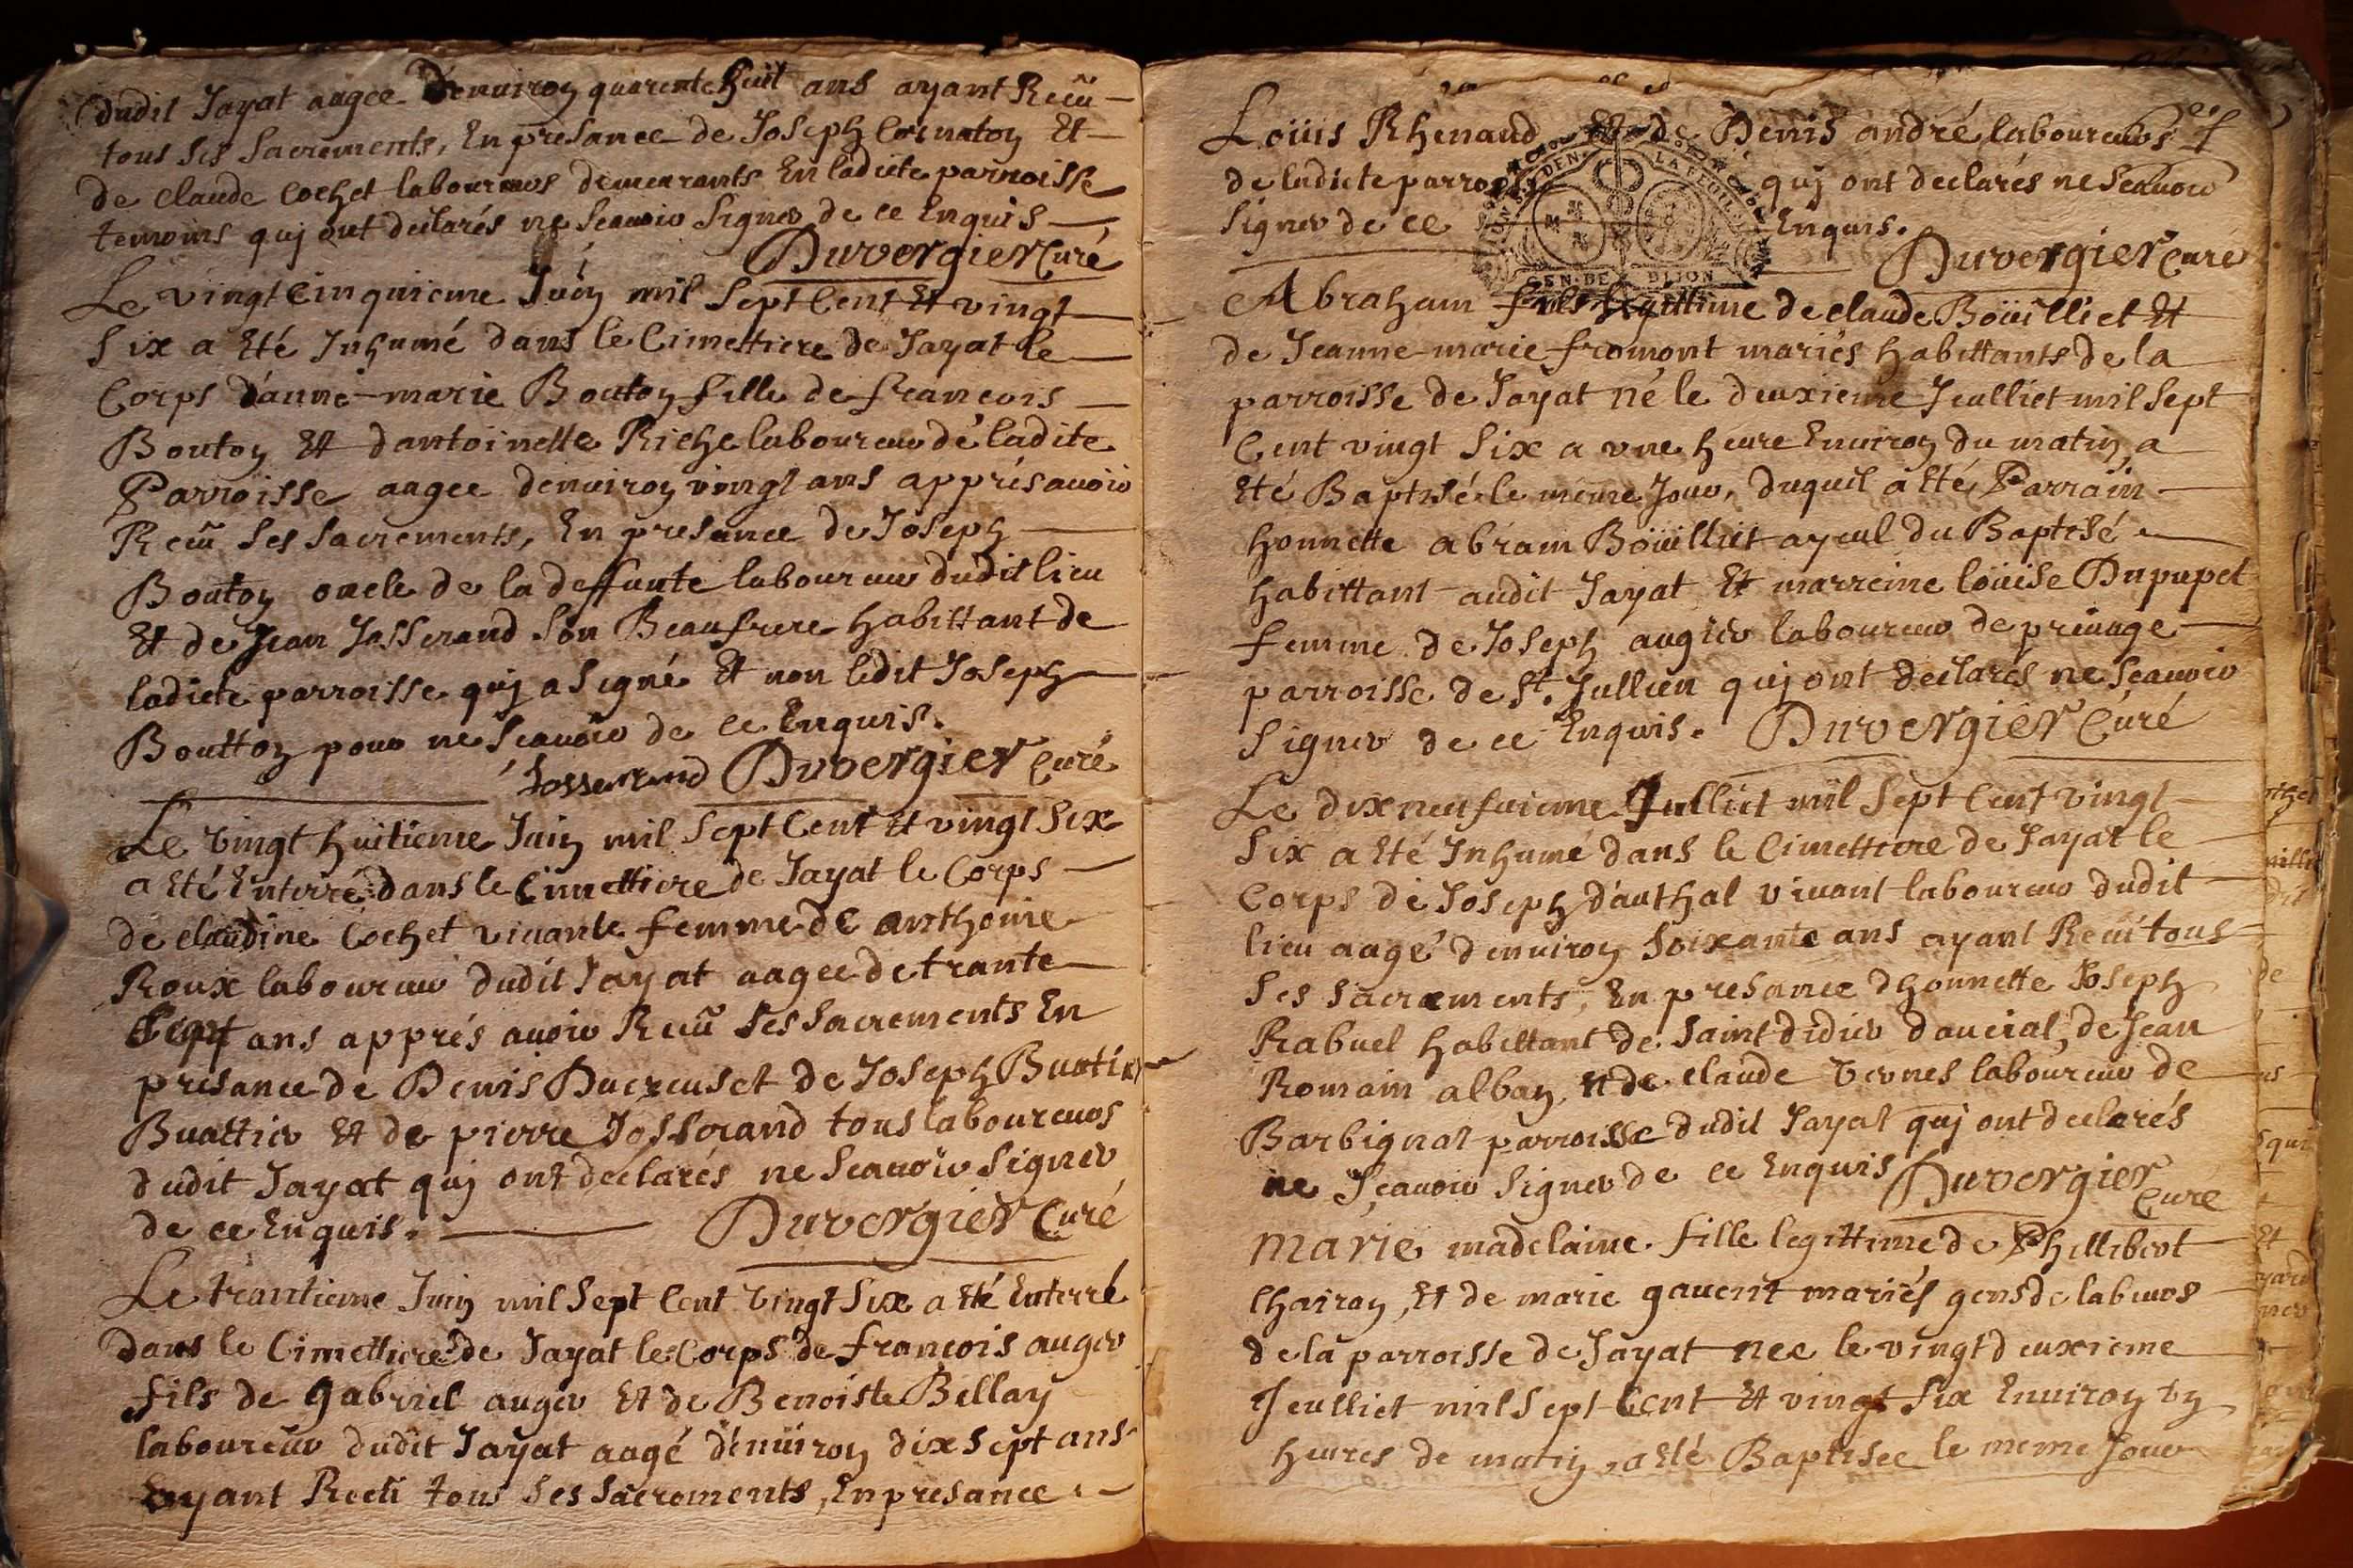 dudit Jayat aagee denuiron quarente huit ans ayant Reçû
tous ses sacrements, En presance de Joseph Cornaton Et
de claude Cochet laboureurs demeurants En ladicte parroisse
temoins quj ont declarés ne Sçauoir Signer de ce Enquis
Duvergier Curé
Le vingt Cinquieme Juin mil Sept Cent Et vingt
Six a Eté Jnhumé dans le Cimettiere de Jayat le
Corps d'anne-marie Bouton fille de francois
Bouton Et dantoinette Riche laboureur de ladite
Parroisse aagee denuiron vingt ans apprés auoir
Reçû ses sacrements, En presance de Joseph
Bouton oncle de la deffunte laboureur dudit lieu
Et de Jean Josserand son Beaufrere habittant de
ladicte parroisse quj a signé Et non ledit Joseph
Boutton pour ne Sçauoir de ce Enquis.
Josserand Duvergier Curé
Le vingt huitieme Juin mil Sept Cent Et vingt Six
a Eté Enterré dans le Cimettiere de Jayat le Corps
de claudine Cochet viuante femme de anthoine
Roux laboureur dudit Jayat aagee de trante
Sept ans apprés auoir Reçû ses sacrements En
presance de Denis Ducreuset de Joseph
Buattier Et de pierre Josserand tous laboureurs
dudit Jayat quj ont declarés ne Sçauoir Signer
de ce Enquis. Duvergier Curé
Le trantieme Juin mil Sept Cent vingt Six a Eté Enterré
dans le Cimettiere de Jayat le Corps de françois auger
fils de gabriel auger Et de Benoiste Bellay
laboureur dudit Jayat aagé d'enuiron dix Sept ans
ayant Reçû tous ses Sacrements, En presance
Loüis Rhenaud Et de Denis andré laboureurs
de ladicte parroisse quj ont declarés ne Sçauoir
Signer de ce Enquis.
Duvergier Curé
LA FEUIL
GEN. DE DIJON
Abraham fils legittime de claude Boüilliet Et
de Jeanne-marie fromont mariés habittants de la
parroisse de Jayat né le deuxieme Jeulliet mil Sept
Cent vingt Six a vne heure Enuiron du matin, a
Eté Baptisé le meme Jour, duquel a Eté Parrain
honnette abram Boüilliet ayeul du Baptisé
habittant audit Jayat Et marreine loüise Dupupet
femme de Joseph augier laboureur de priuage
parroisse de St. Jullien quj ont declarés ne Sçauoir
Signer de ce Enquis. Duvergier Curé
Le dix neufuieme Julliet mil Sept Cent vingt
Six a Eté Jnhumé dans le Cimettiere de Jayat le
Corps de Joseph d'authal viuant laboureur dudit
lieu aagé denuiron Soixante ans ayant Reçû tous
Ses Sacrements, En presance dhonnette Joseph
Rabuel habittant de Saint didier daucial, de Jean
Romain alban, Et de claude Vernes laboureur de
Barbignat parroisse dudit Jayat quj ont declarés
ne Sçauoir Signer de ce Enquis Duvergier
Curé
Marie madelaine fille legittime de Phillibert
Chairon, Et de marie gauent mariés gens de labeurs
de la parroisse de Jayat nee le vingt deuxieme
Jeulliet mil Sept Cent Et vingt Six Enuiron vn
heures de matin, a Eté Baptisee le meme Jour